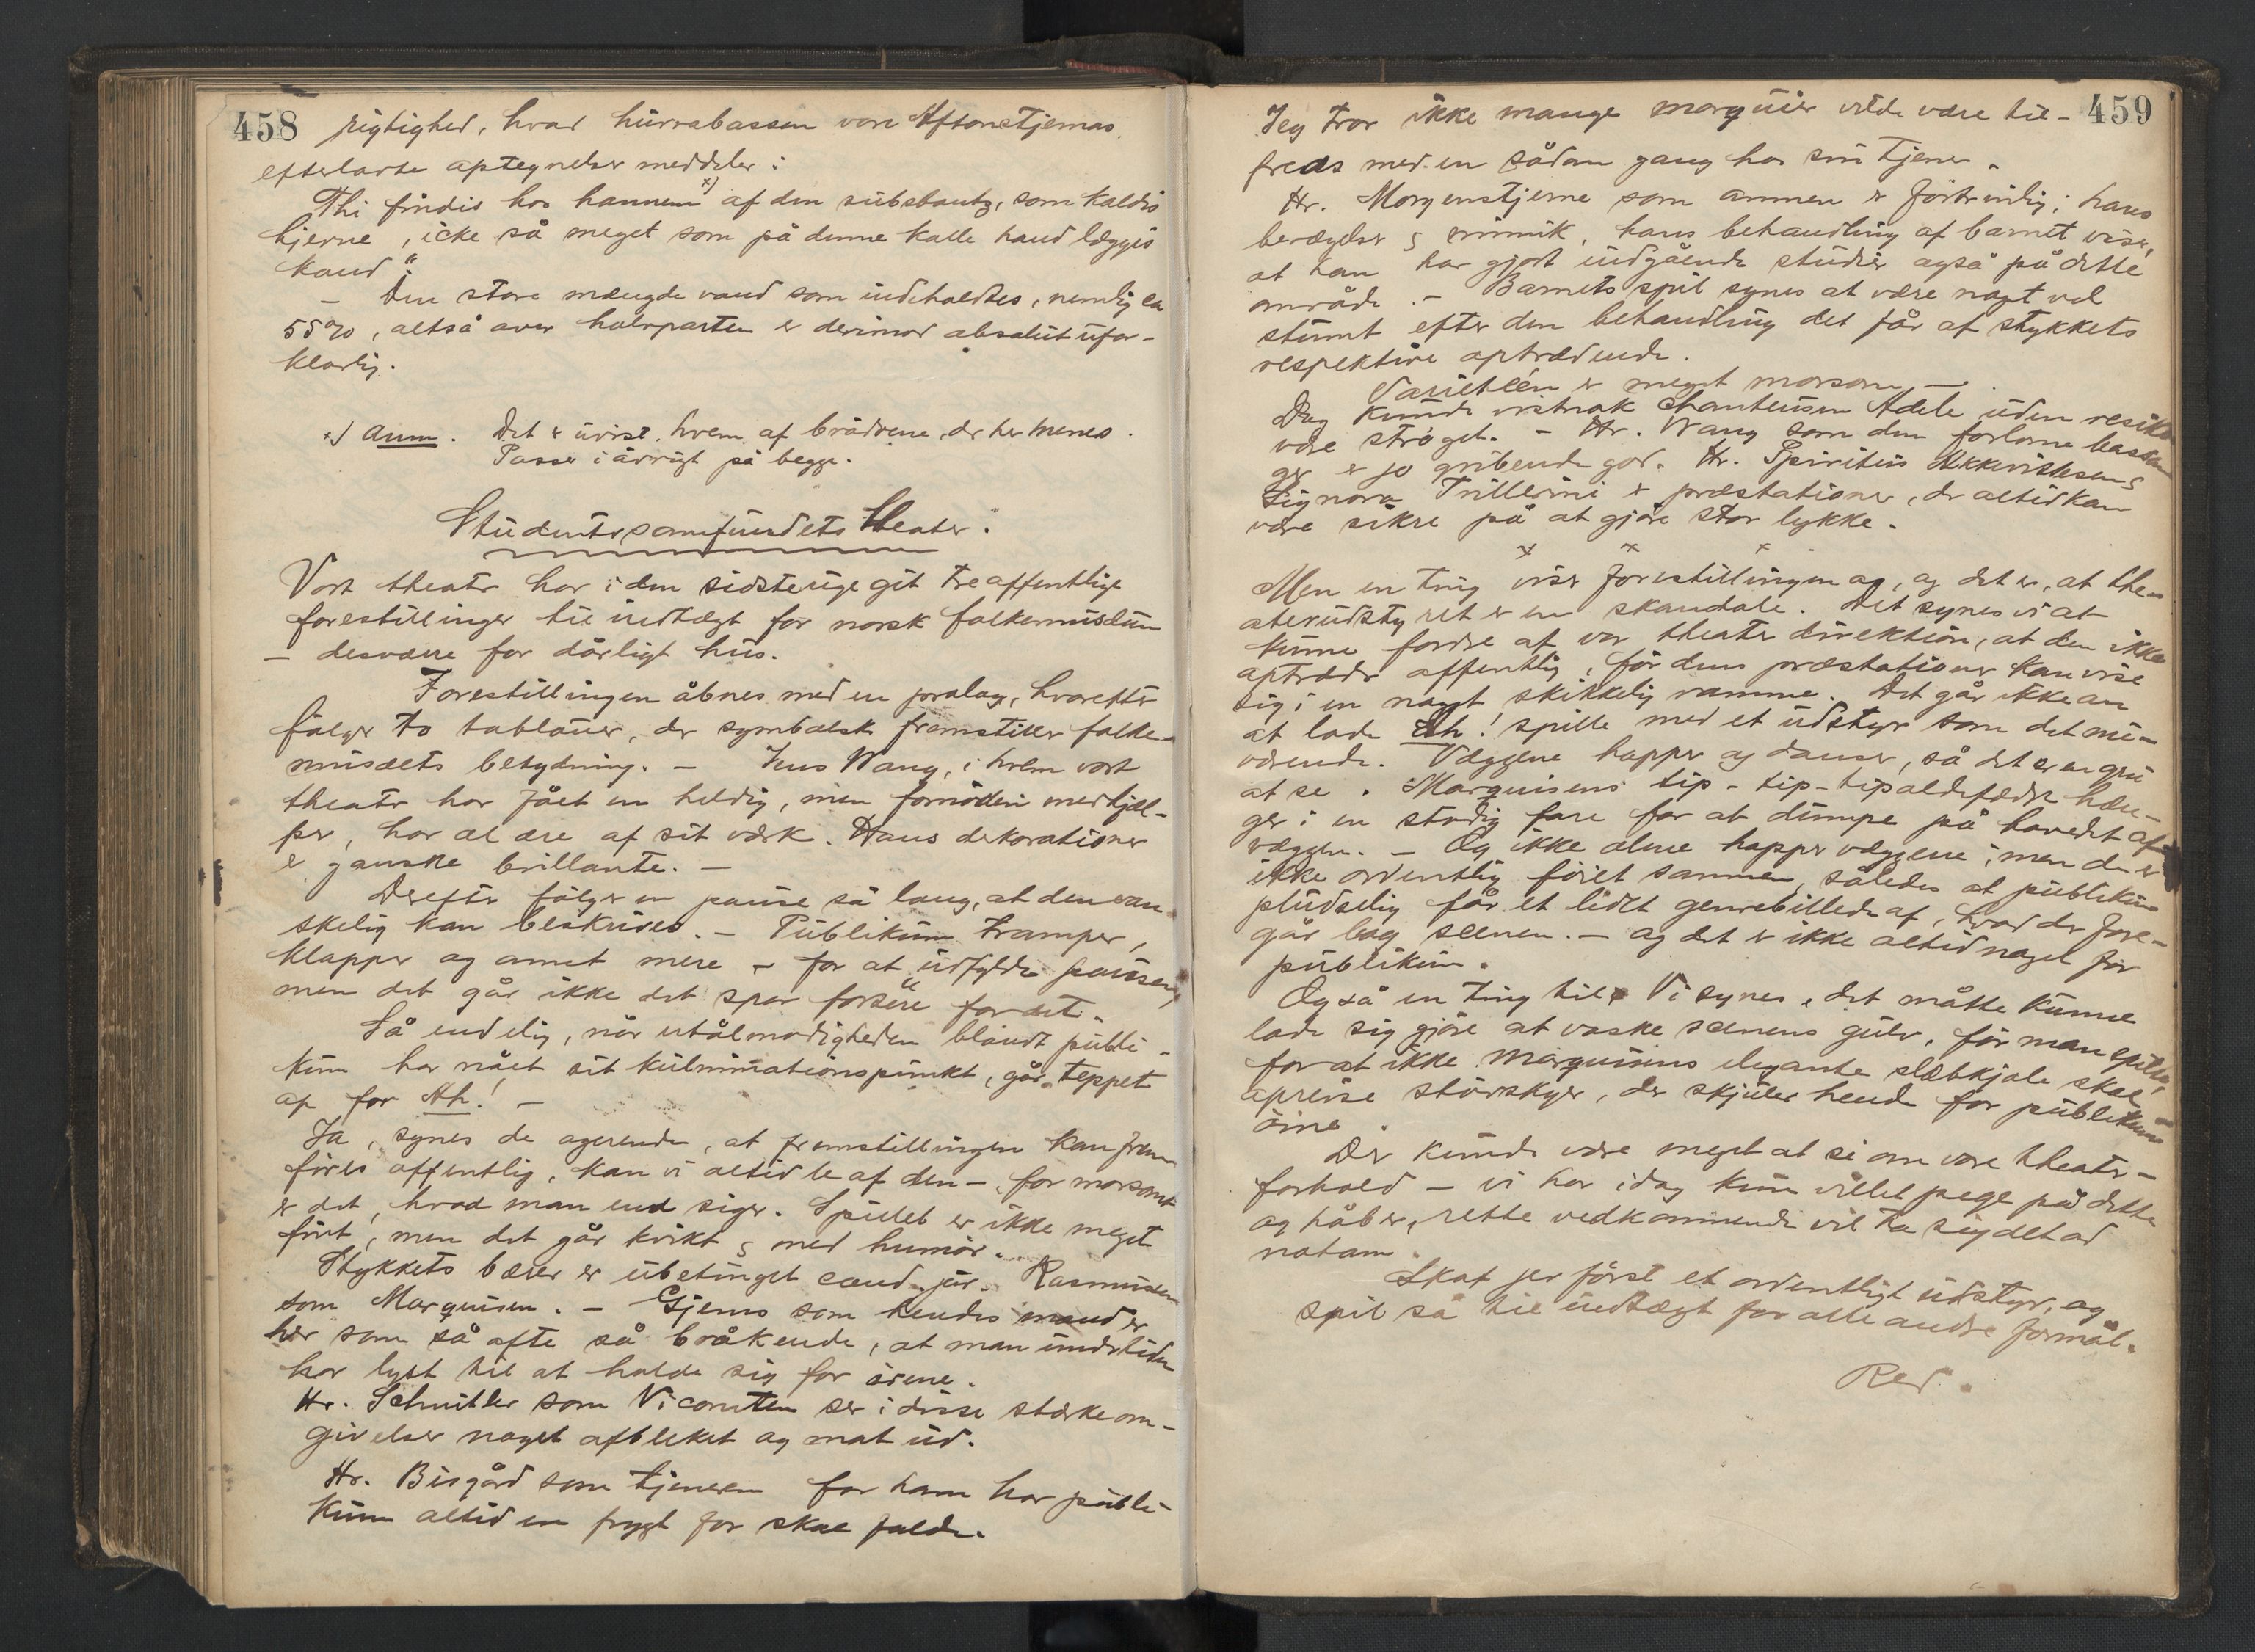 458
rigtighed, hvad hurrabassen vore Aftenstjernas
efterlatte optegnelser meddeler:
Thi findis hos hannem x) af den substantz, som kaldis
hjerne, icke så meget som på denne kalle haud læggis
kand"
— Den store mængde vand som indeholdtes, nemlig ca
55%, altså over halvparten er derimod absolut ufor-
klarlig.
x) Anm. Det er uvist hvem af brødrene, der her menes.
Passer i øvrigt på begge.
Studentersamfundets Theater.
Vort theater har i den sidste uge git tre offentlige
forestillinger til indtægt for norsk folkemusæum
— desværre for dårligt hus.
Forestillingen åbnes med en prolog, hvorefter
følger to tablåuer, der symbolsk fremstiller folke-
musæets betydning. — Jens Wang, i hvem vort
theater har fået en heldig, men fornøden medhjæl-
per, har al ære af sit værk. Hans dekorationer
er ganske brillante. —
Derefter følger en pause så lang, at den van-
skelig kan beskrives. — Publikum tramper,
klapper og annet mere — for at udfylde pausen,
men det går ikke det spor forttere for det.
Så endelig, når utålmodigheden blandt publi-
kum har nået sit kulminationspunkt, går teppet
op for Ah! —
Ja, synes de agerende, at fremstillingen kan frem
føres offentlig, kan vi altid le af den — for morsomt
er det, hvad man end siger. Spillet er ikke meget
fint, men det går kvikt & med humør.
Stykkets bærer er ubetinget cand. jur. Rasmussen
som Marquisen. — Gjems som hendes mand er
her som så ofte så bråkende, at man undertiden
har lyst til at holde sig for ørene.
Hr. Schnitler som Vicomten ser i disse stærke om-
givelser noget afbleket og mat ud.
Hr. Bisgård som tjeneren for ham har publi-
kum altid en frygt for skal falde.
459
Jeg tror ikke mange marquier vilde være til-
freds med en sådan gang hos sin tjener.
Hr. Morgenstjerne som ammen er fortrinlig; hans
bevægelser & mimik, hans behandling af barnet viser,
at han har gjort indgående studier også på dette
område. — Barnets spil synes at være nogt vel
stumt efter den behandling det får af stykkets
respektive optrædende.
Varietéen er meget morsom —
Dog kunde vistnok Chanteusen Adele uden resiko
være strøget. — Hr. Wang som den forlorne bassan
ger er jo gribende god. Hr. Spiritus Akkevitksen &
Signora Trillerini er præstationer, der altid kan
være sikre på at gjøre stor lykke.
x x x
Men en ting viser forestillingen og, og det er, at the-
aterudstyret er en skandale. Det synes vi at
kunne fordre af vor theaterdirektion, at den ikke
optræder offentlig, før dens præstationer kan vise
sig i en nogt skikkelig ramme. Det går ikke an
at lade Ah! spille med et udstyr som det nu-
værende. Væggene hopper og danser, så det er en gru
at se. Marquisens tip-tip-tipoldefædre hæn-
ger i en stadig fare for at dumpe på hovedet af
væggen. — Og ikke alene hopper væggene; men de er
ikke ordentlig føiet sammen, således at publikum
pludselig får et lidet genrebillede af, hvad der fore-
går bag scenen. — og det er ikke altid noget for
publikum.
Også en ting til. Vi synes, det måtte kunne
lade sig gjøre at vaske scenens gulv, før man spiller,
for at ikke Marquisens elegante slæbkjole skal
opreise støvskyer, der skjuler hende for publikums
øine.
Der kunde være meget at si om vore theater-
forhold — vi har idag kun villet pege på dette
og håber, rette vedkommende vil ta sig det ad
notam.
Skaf jer først et ordentligt udstyr, og
spil så til indtægt for alle andre formål.
Red.